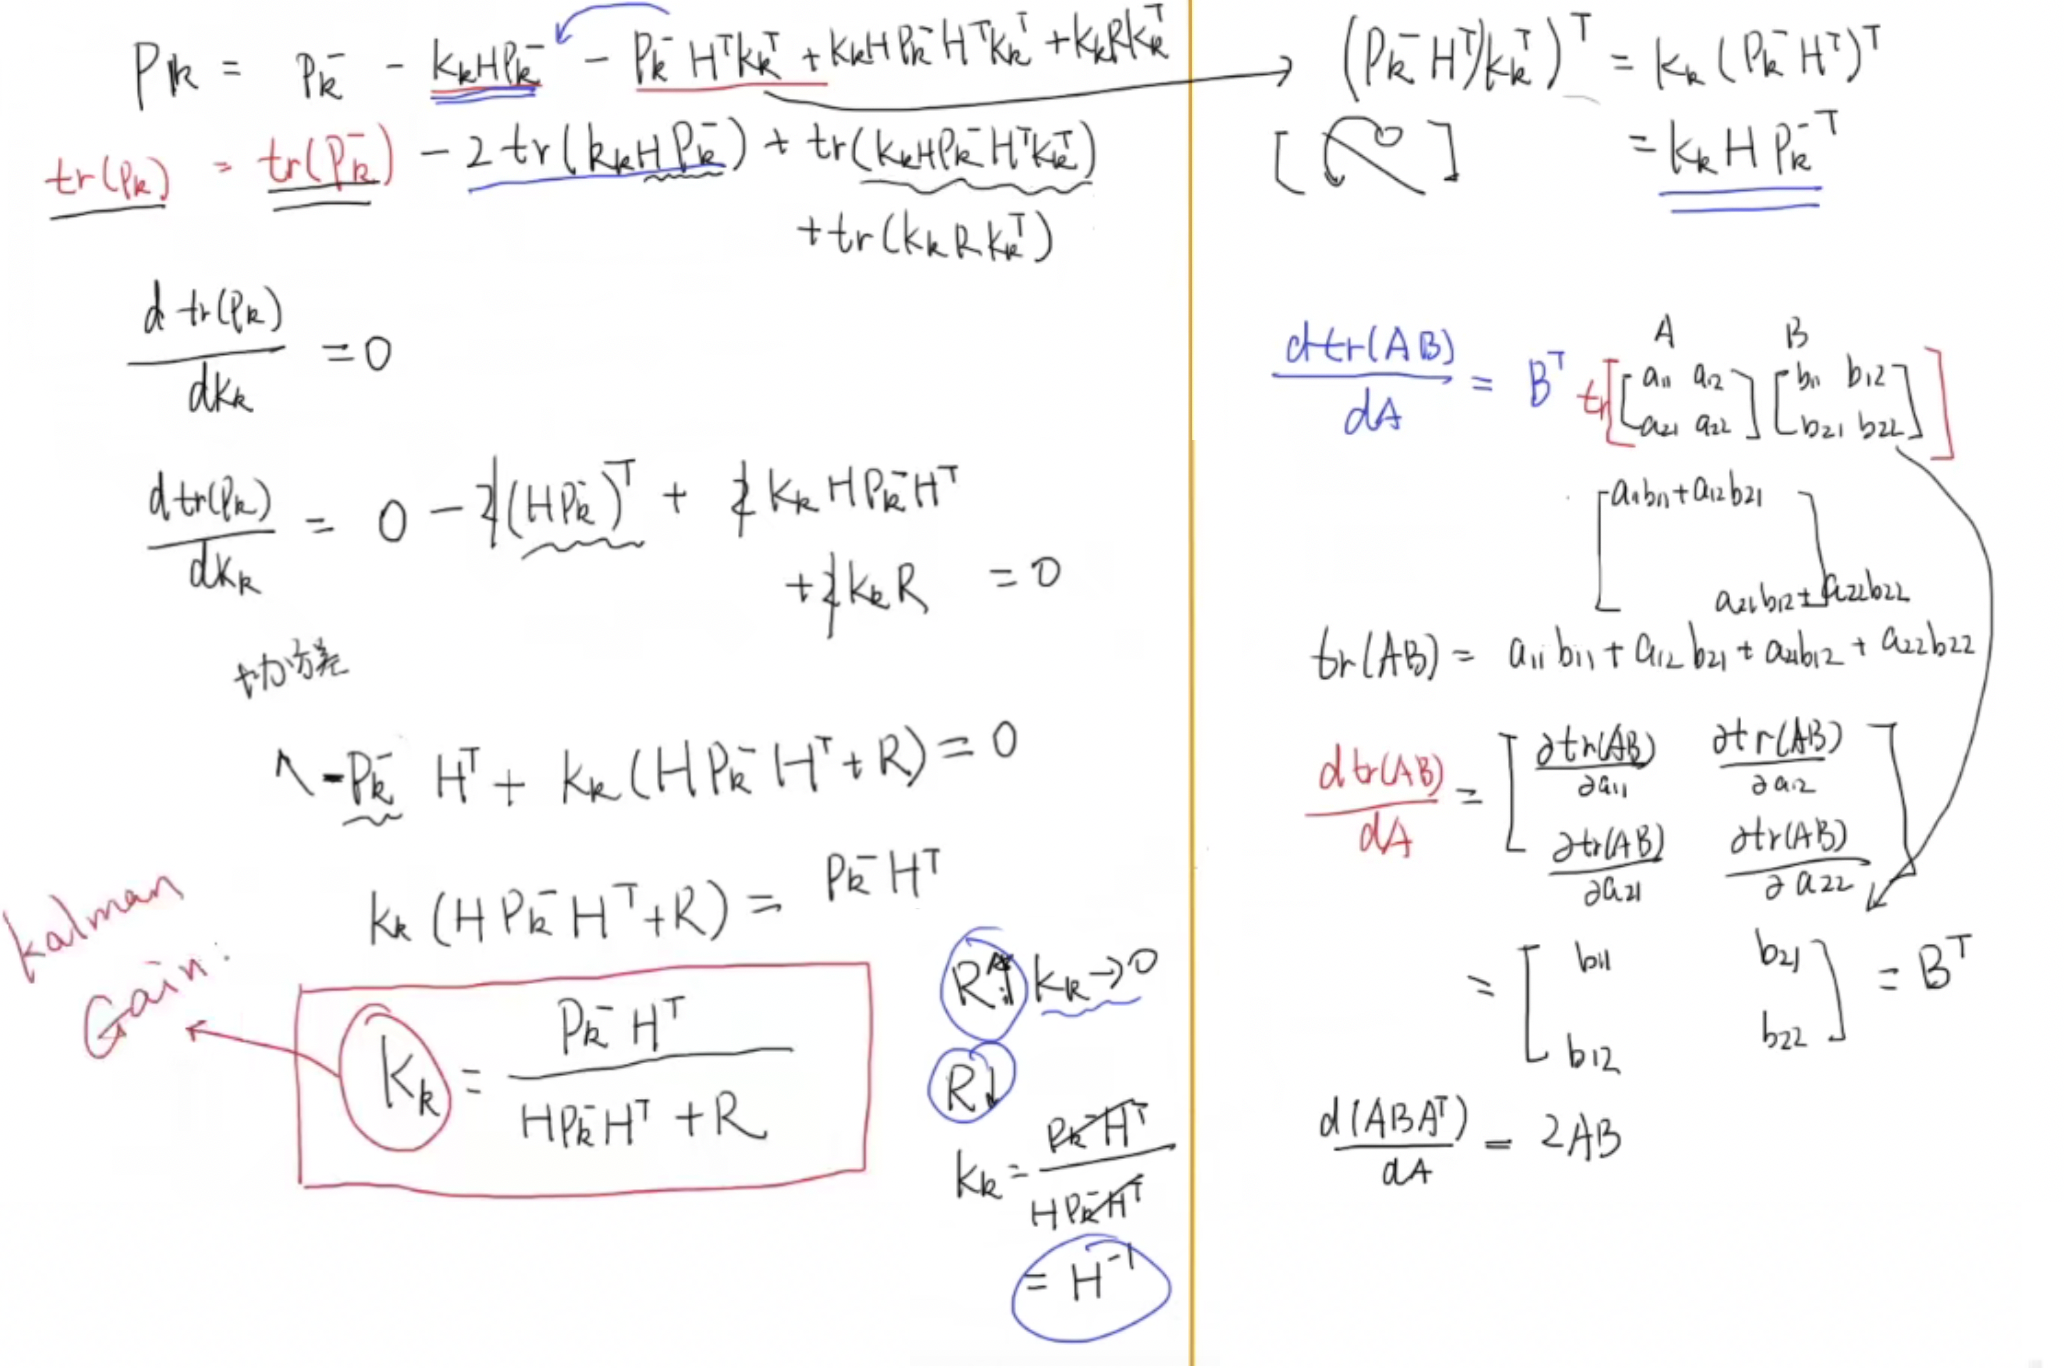 Pk = Pk⁻ - KkHPk⁻ - Pk⁻HᵀKkᵀ + KkHPk⁻HᵀKkᵀ + KkRKkᵀ
tr(Pk) = tr(Pk⁻) - 2tr(KkHPk⁻) + tr(KkHPk⁻HᵀKkᵀ)
+ tr(KkRKkᵀ)
d tr(Pk)
dKk
= 0
d tr(Pk)
dKk
= 0 - 2(HPk⁻)ᵀ + 2KkHPk⁻Hᵀ
+ 2KkR = 0
协方差
-Pk⁻Hᵀ + Kk(HPk⁻Hᵀ + R) = 0
Kk(HPk⁻Hᵀ + R) = Pk⁻Hᵀ
Kalman
Gain:
Kk = Pk⁻Hᵀ
HPk⁻Hᵀ + R
R↑ Kk→0
R↓
Kk = Pk⁻Hᵀ
HPk⁻Hᵀ
= H⁻¹
(Pk⁻Hᵀ)Kkᵀ)ᵀ = Kk(Pk⁻Hᵀ)ᵀ
= KkHPk⁻ᵀ
A B
dtr(AB)
dA
= Bᵀ tr[[a11 a12
a21 a22] [b11 b12
b21 b22]]
[a11b11+a12b21
a21b12+a22b22]
tr(AB) = a11b11 + a12b21 + a21b12 + a22b22
dtr(AB)
dA
= [∂tr(AB)
∂a11
∂tr(AB)
∂a12
∂tr(AB)
∂a21
∂tr(AB)
∂a22]
= [b11 b21
b12 b22] = Bᵀ
d(ABAᵀ)
dA
= 2AB